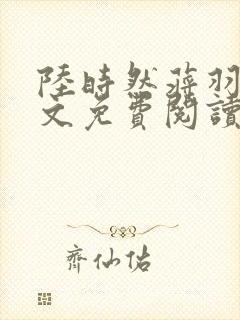 陸時然蒋羽
文免費閱讀
齊仙佑